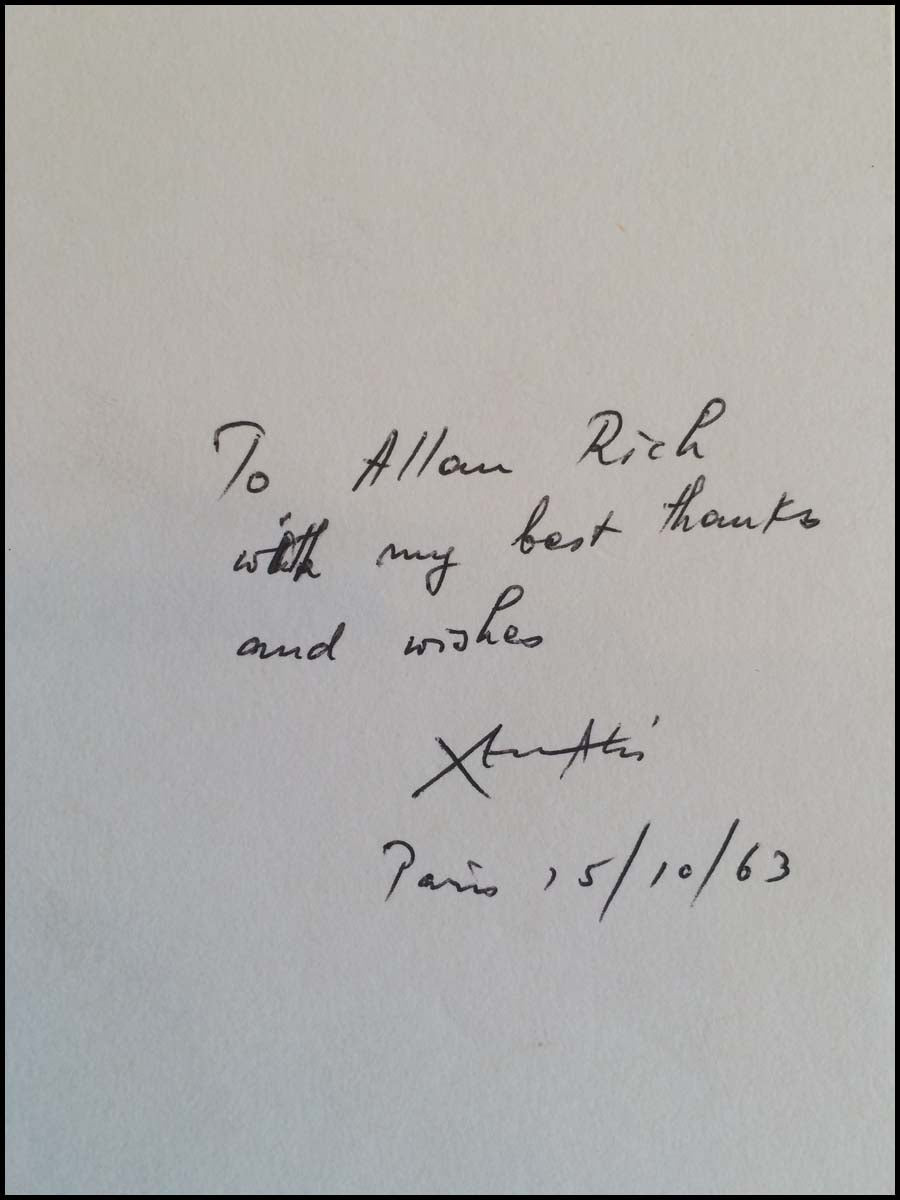 To Allan Rich
with my best thanks
and wishes
Xenakis
Paris 15/10/63